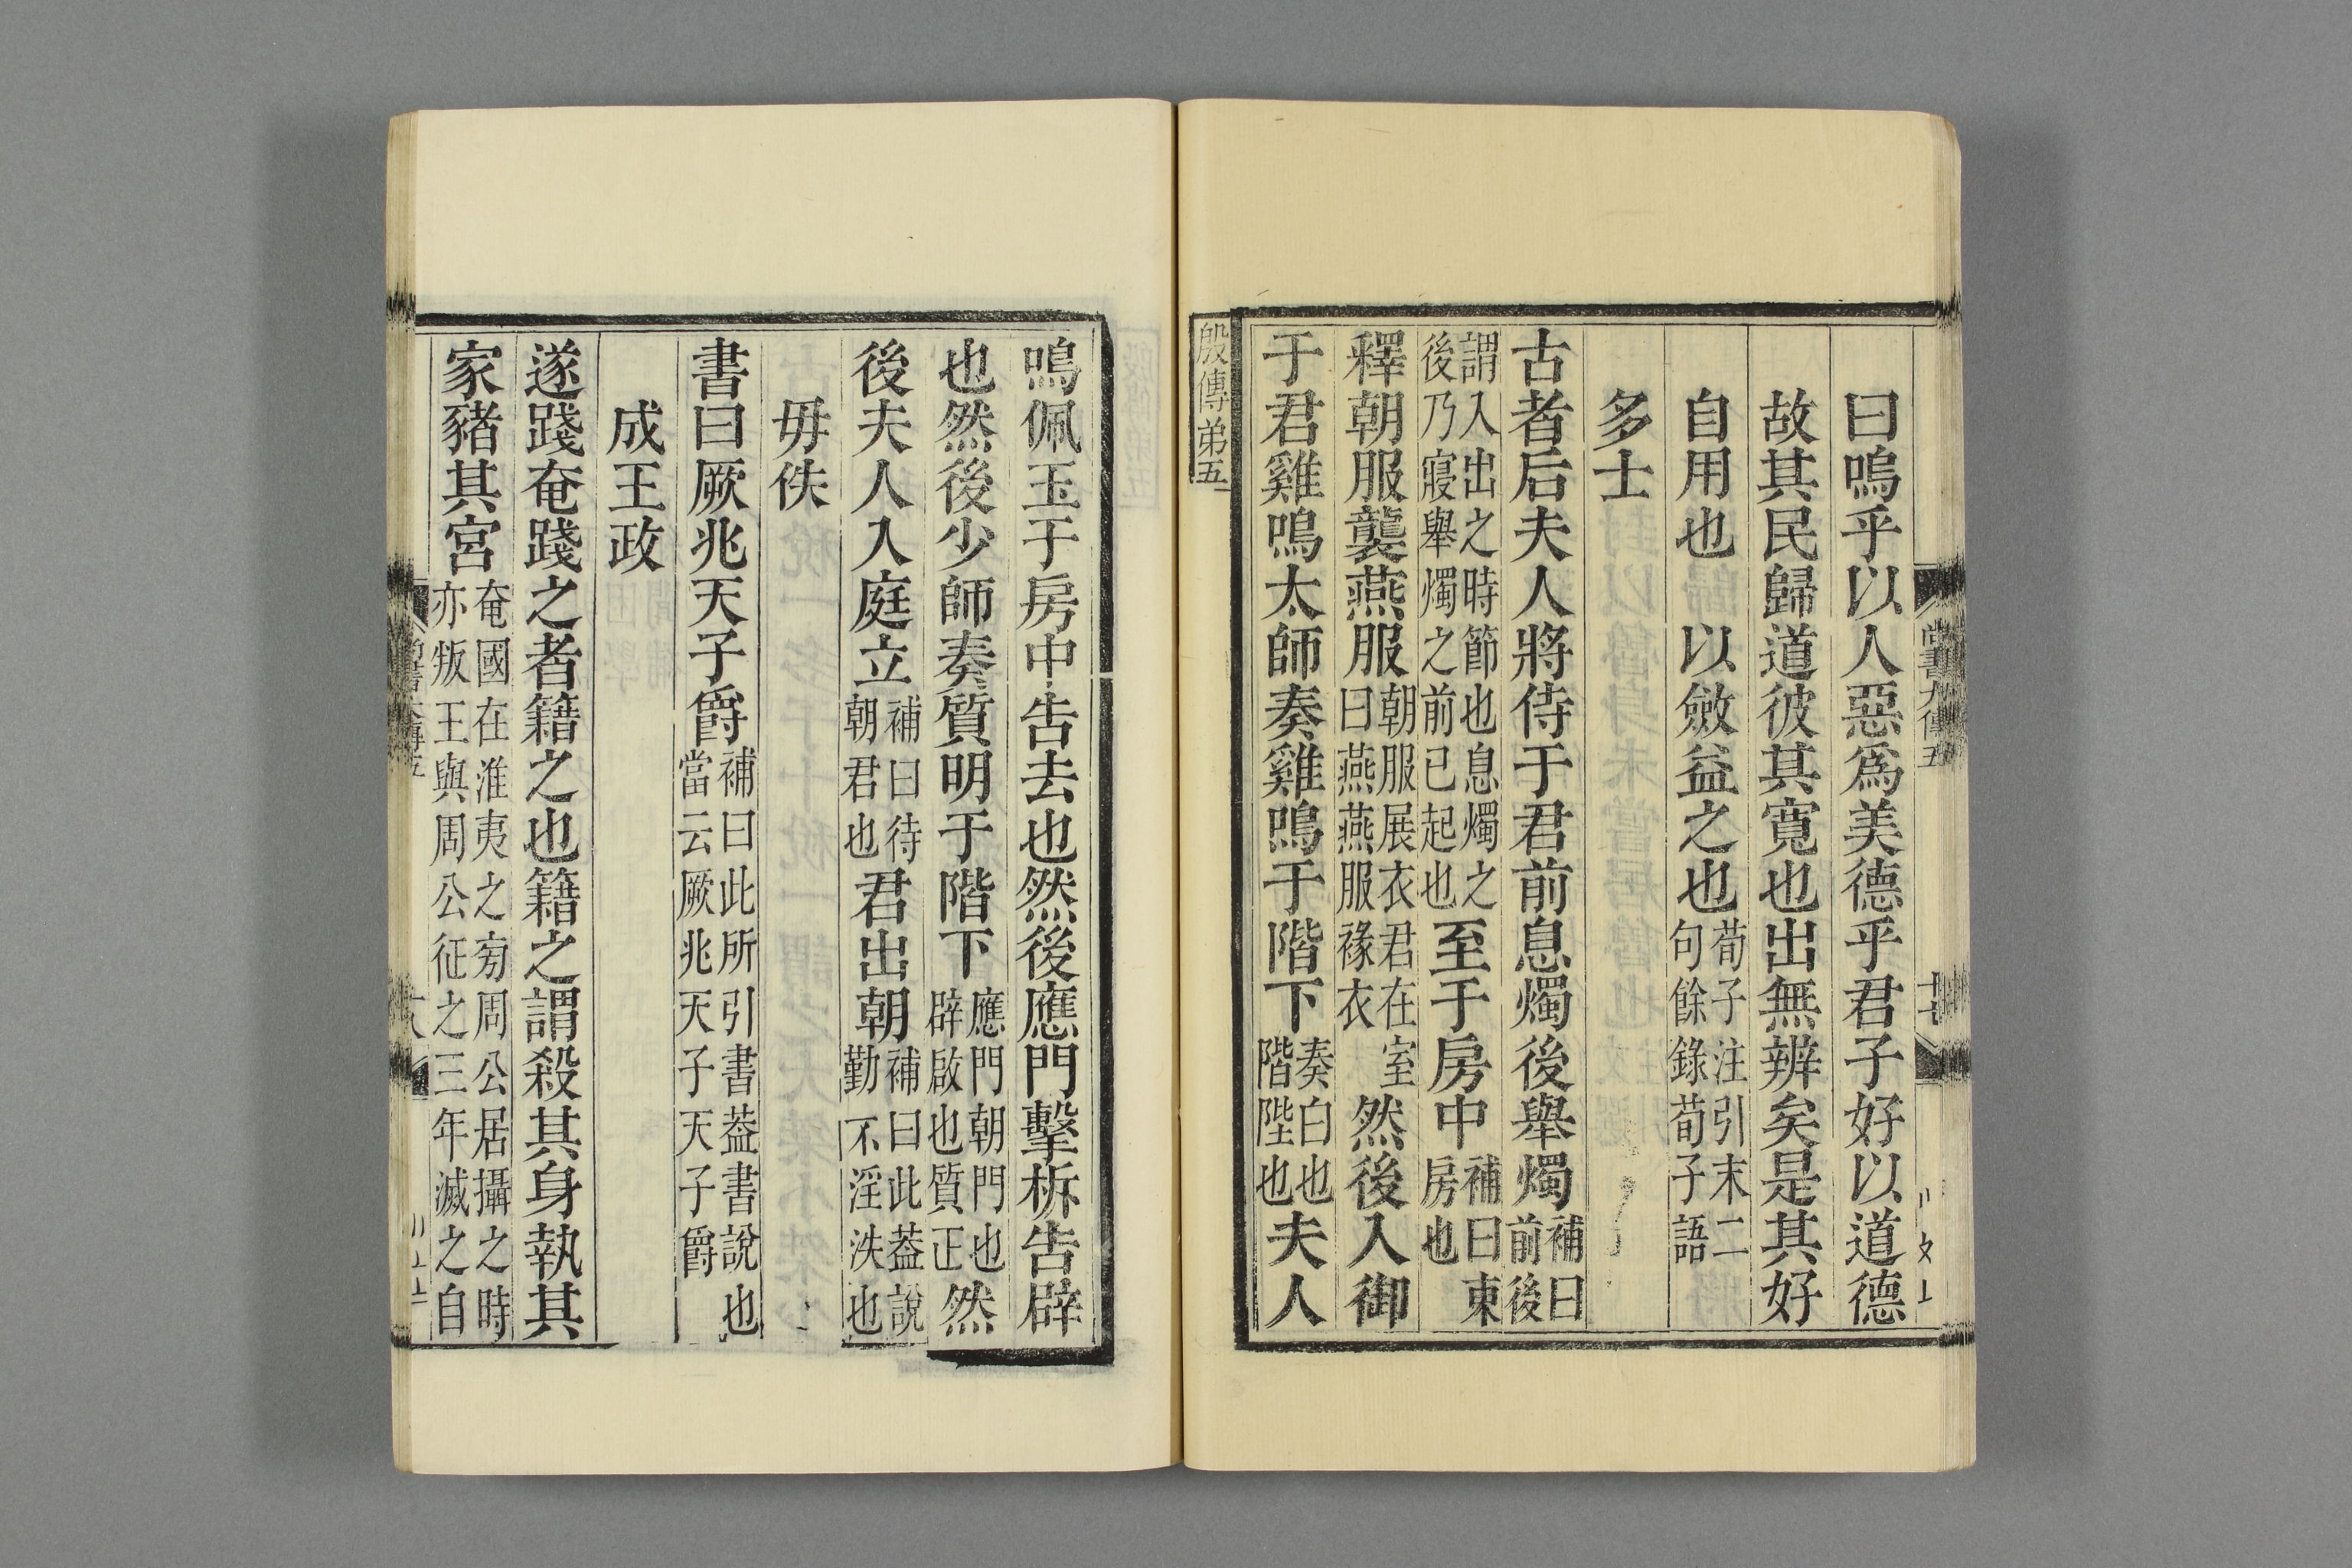 曰嗚乎以人惡爲美德乎君子好以道德
故其民歸道彼其寬也出無辨矣是其好
自用也以斂益之也荀子注引末二
句餘錄荀子語
多士
古者后夫人將侍于君前息燭後舉燭補曰
前後
謂入出之時節也息燭之
後乃寢舉燭之前已起也至于房中補曰東
房也
釋朝服襲燕服朝服展衣君在室
曰燕燕服褖衣然後入御
于君雞鳴太師奏雞鳴于階下奏白也
階陛也夫人
殷傳弟五
鳴佩玉于房中告去也然後應門擊柝告辟
也然後少師奏質明于階下應門朝門也
辟啟也質正然
後夫人入庭立補曰待
朝君也君出朝補曰此葢說
勤不淫泆也
毋佚
書曰厥兆天子爵補曰此所引書葢書說也
當云厥兆天子天子爵
成王政
遂踐奄踐之者籍之也籍之謂殺其身執其
家豬其宮奄國在淮夷之㫄周公居攝之時
亦叛王與周公征之三年滅之自